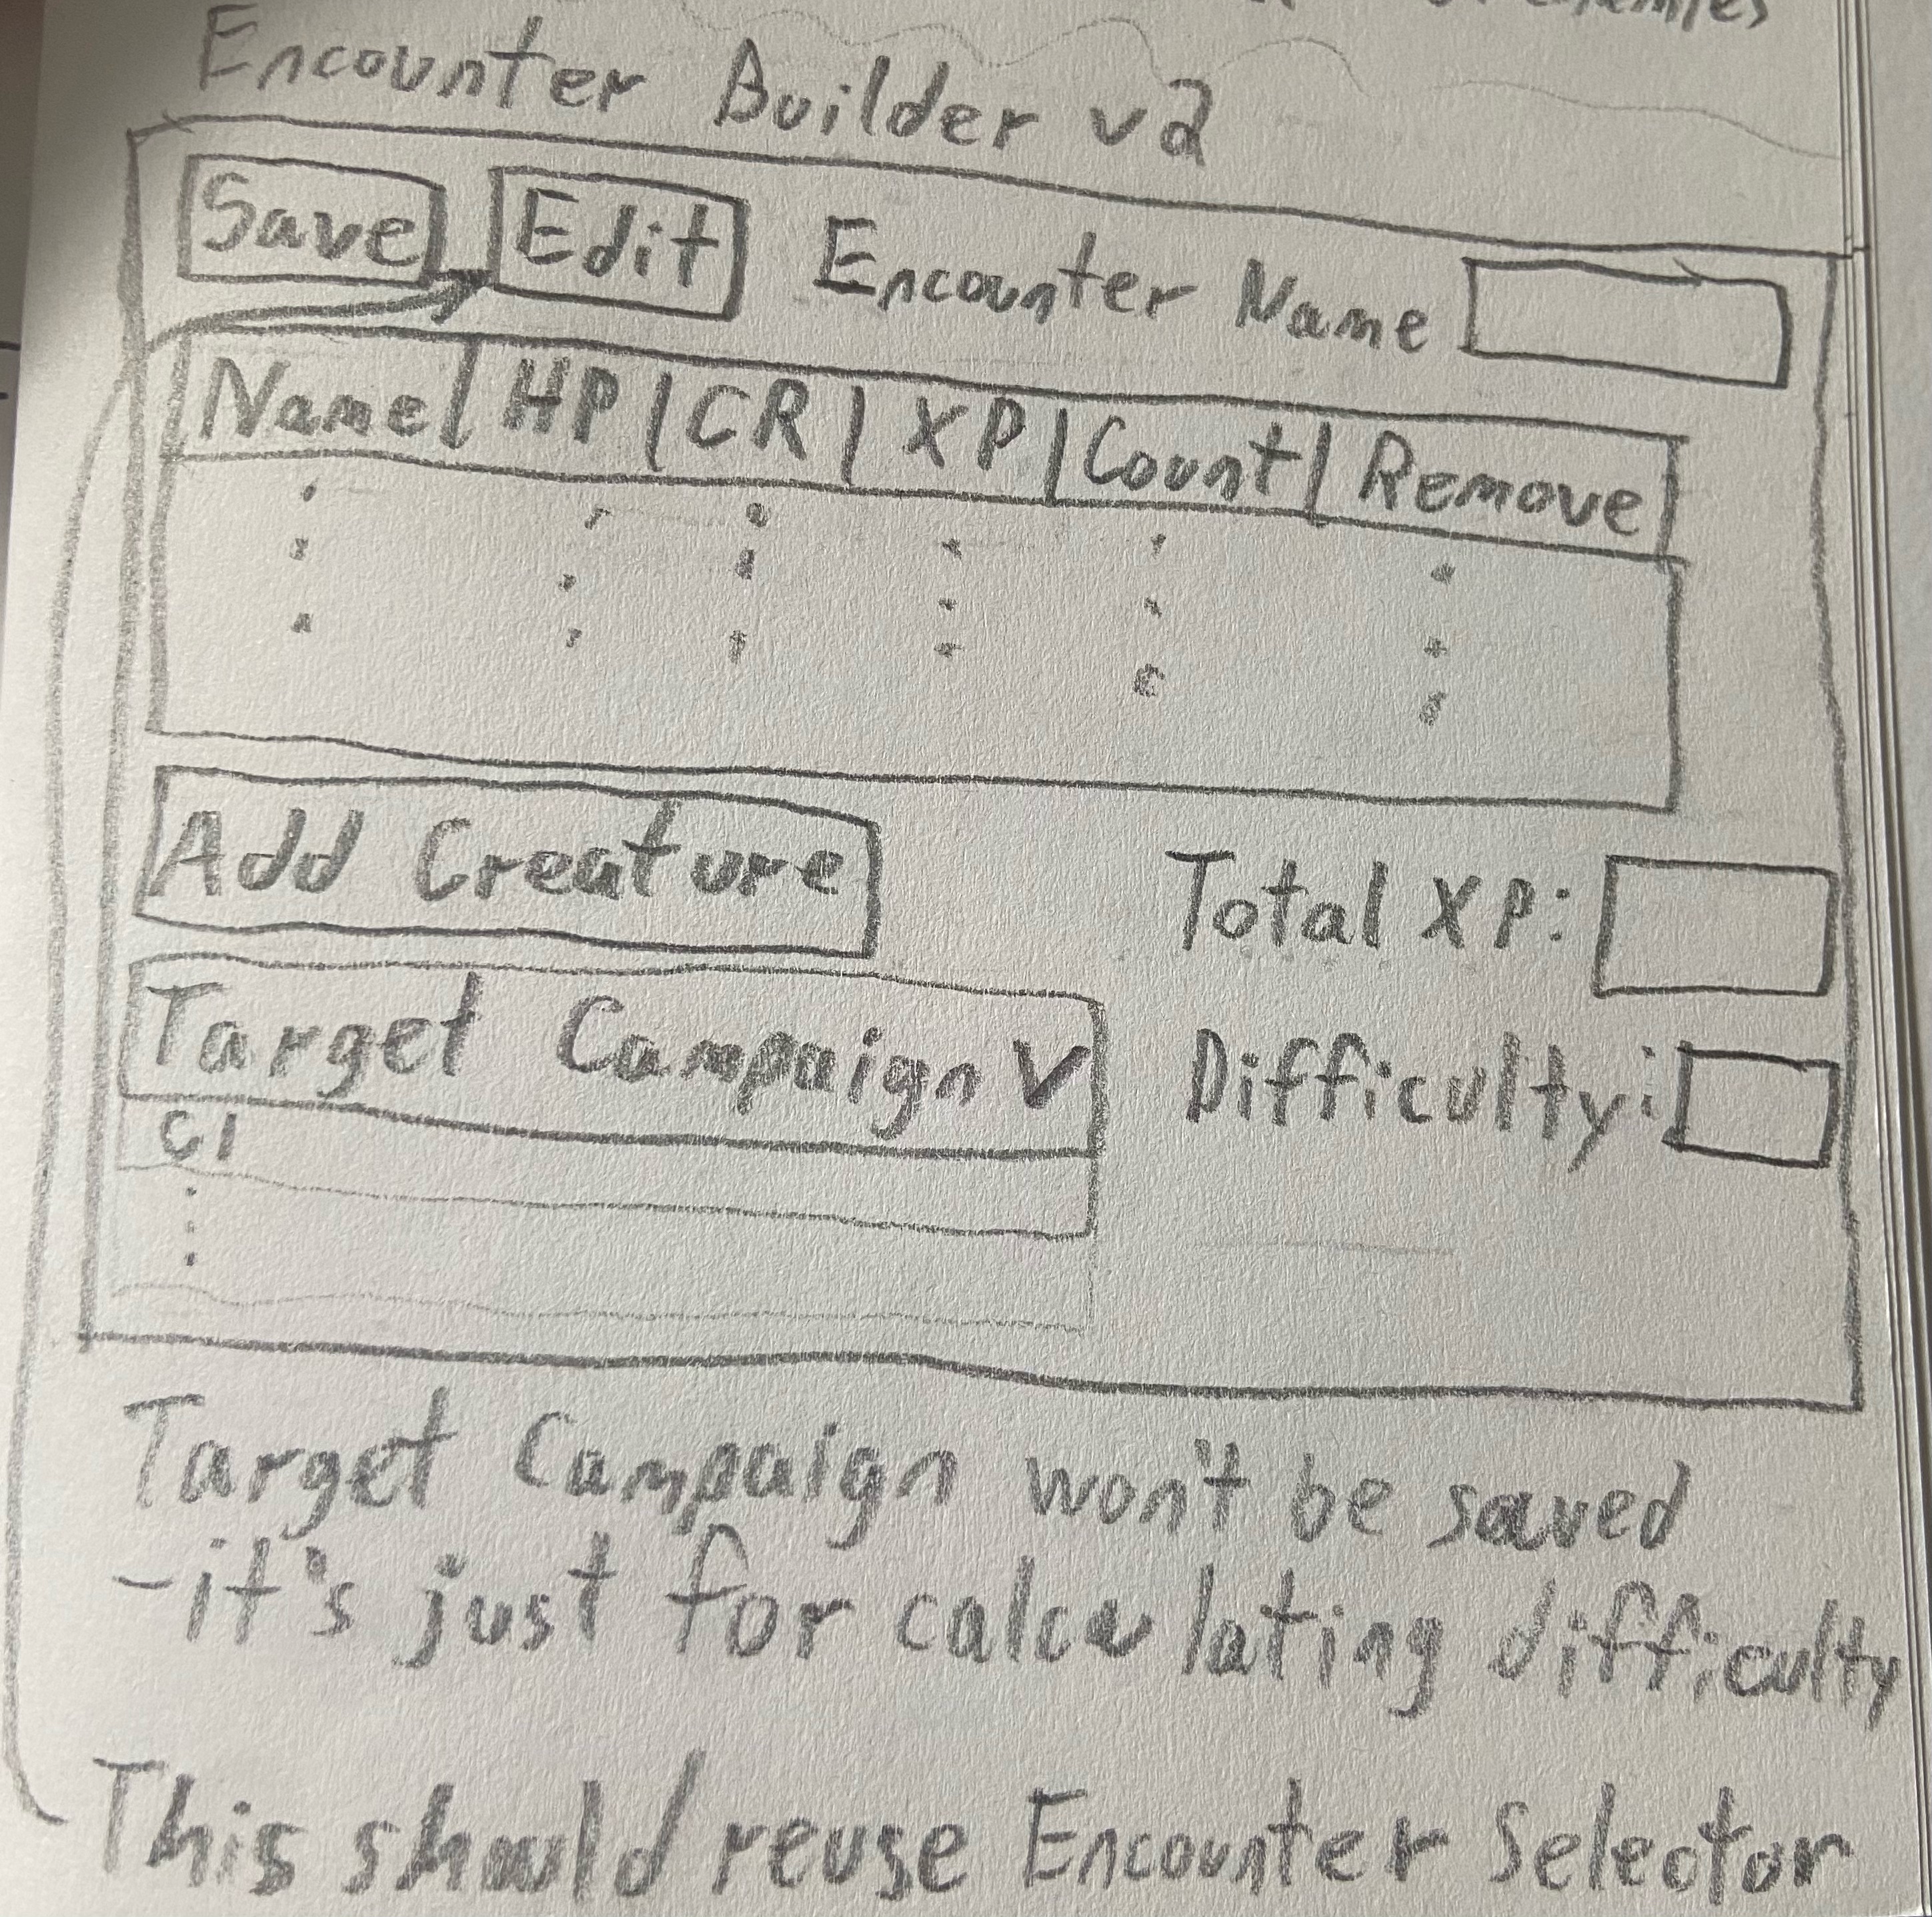 Encounter Builder v2
Save Edit Encounter Name
Name | HP | CR | XP | Count | Remove
Add Creature
Total XP:
Target Campaign V
Difficulty:
C1
Target Campaign won't be saved
-it's just for calculating difficulty
This should reuse Encounter Selector